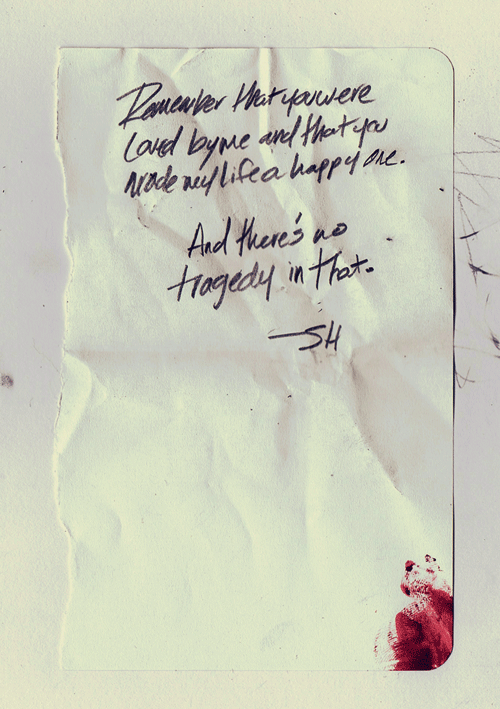 Remember that you were
loved by me and that you
made my life a happy one.
And there's no
tragedy in that.
—SH